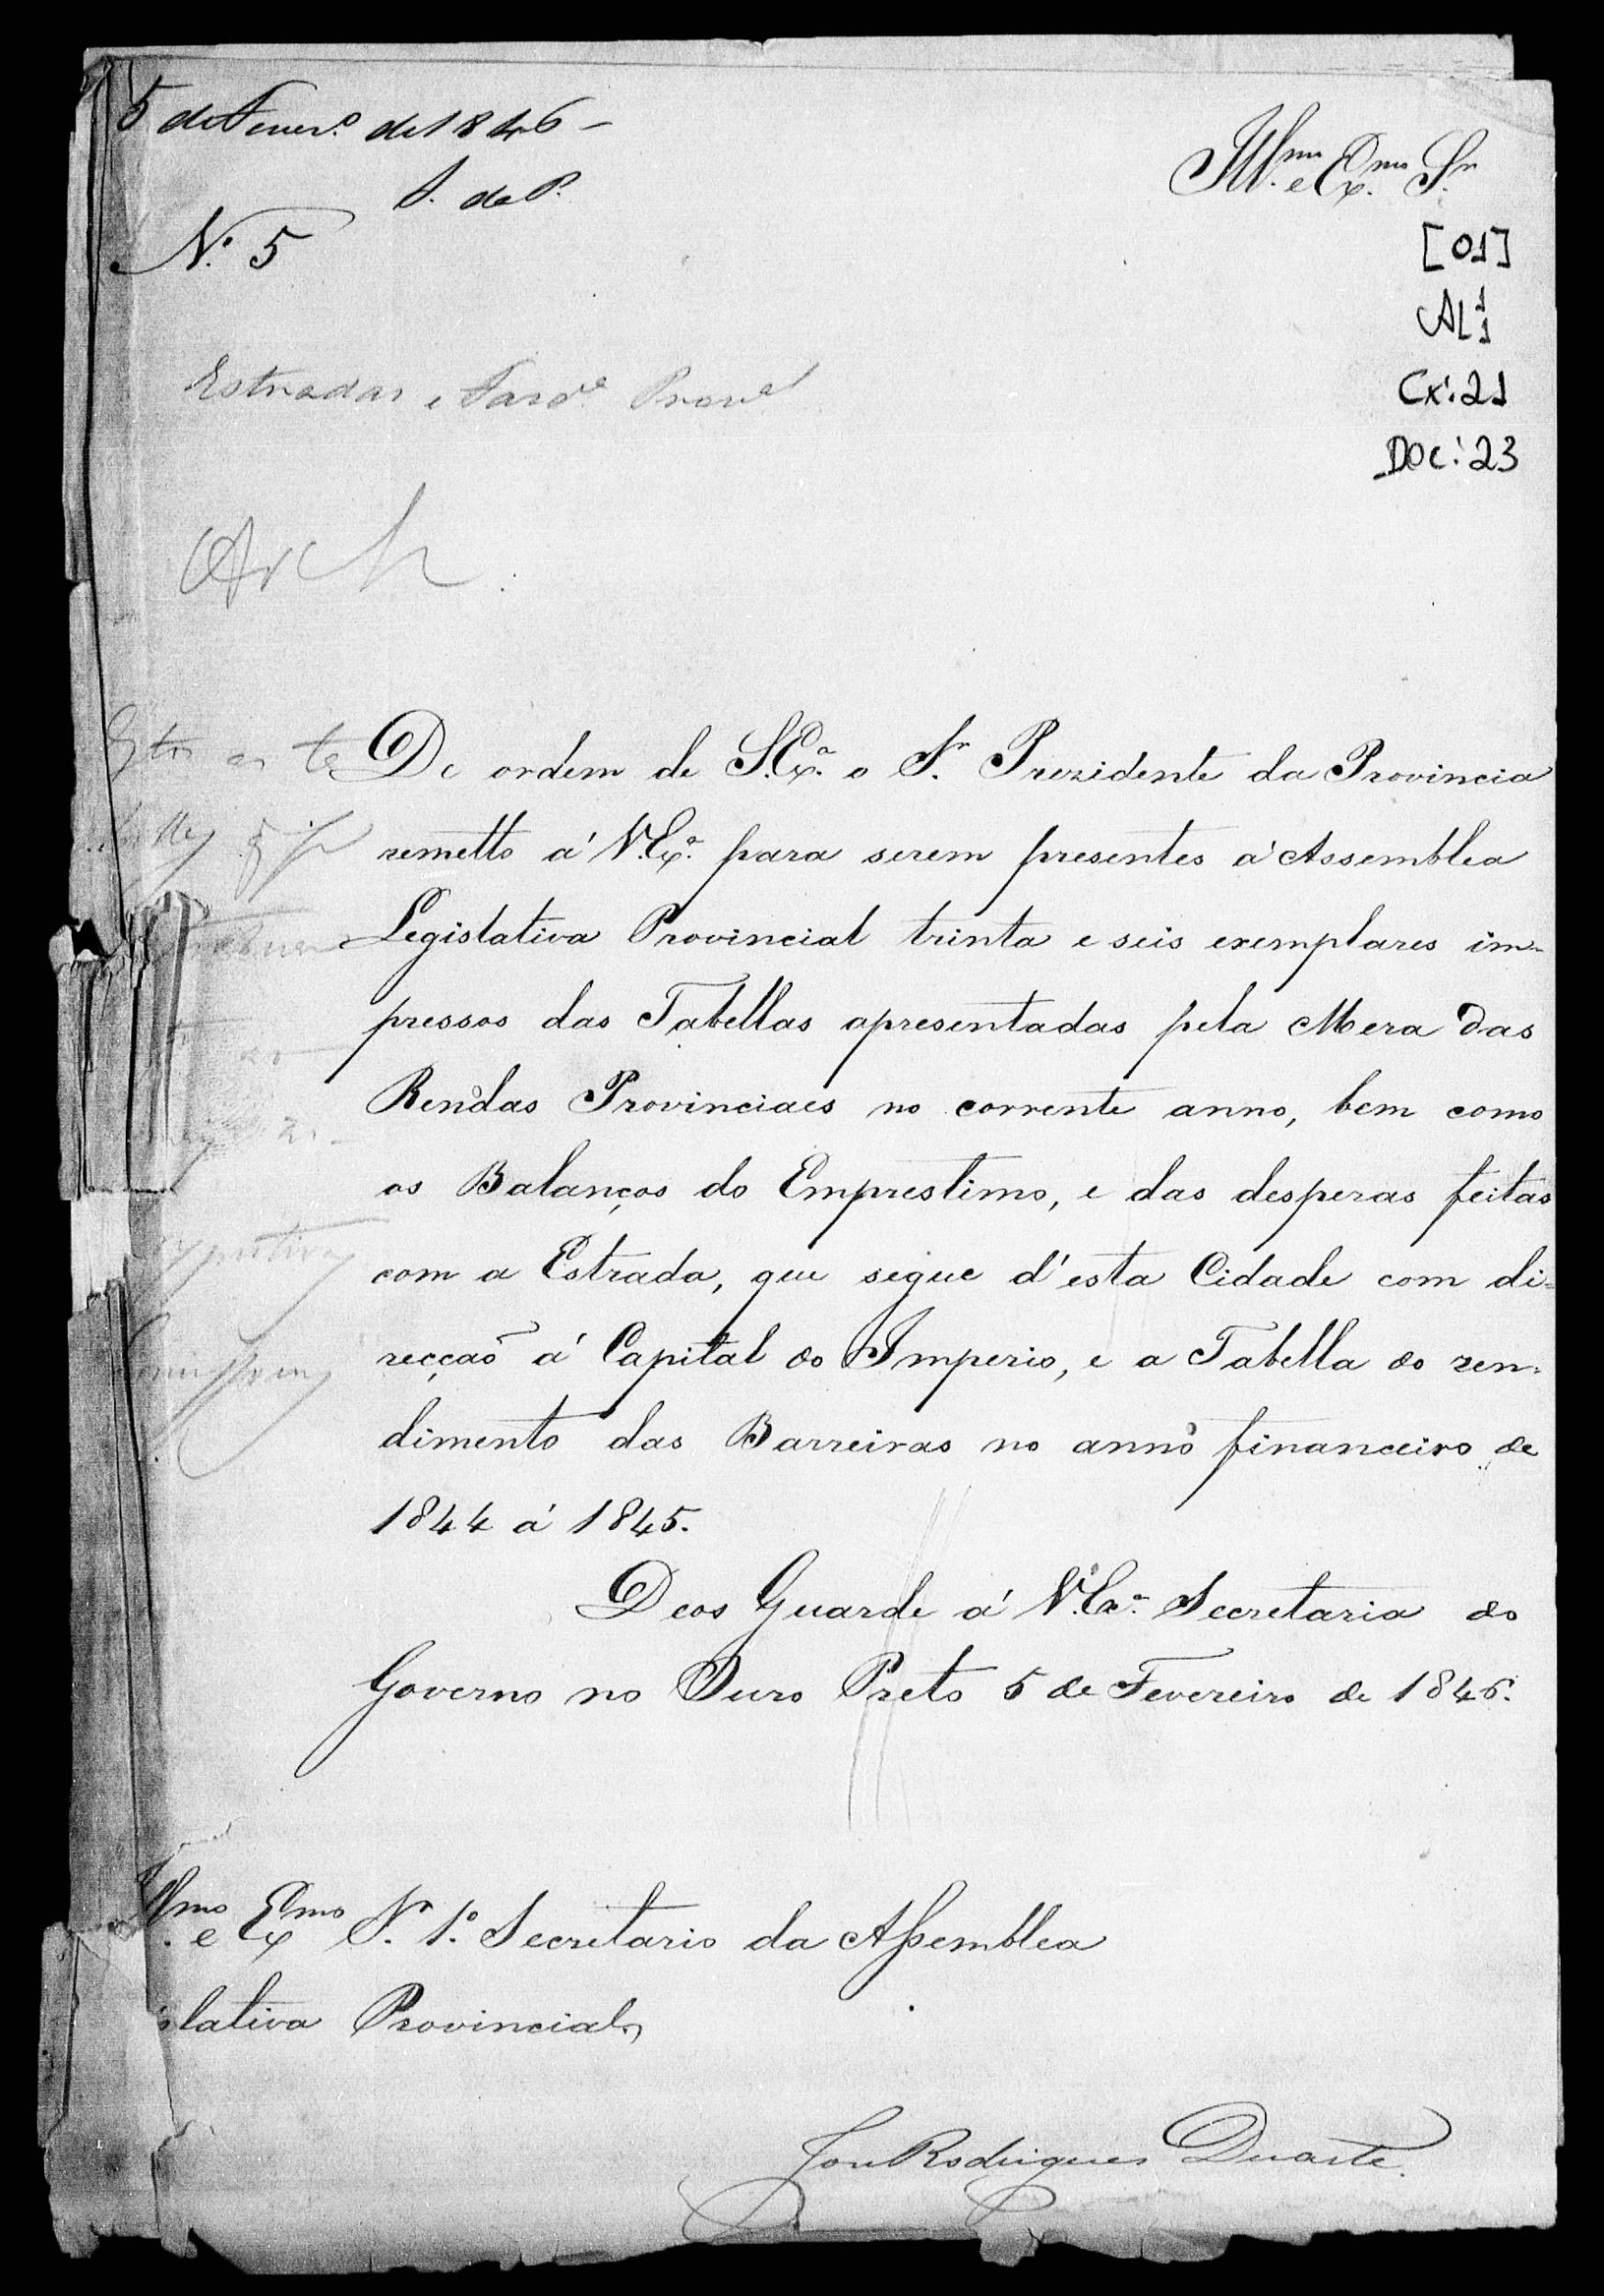 5 de Fever.º de 1846 –
S. da P.
Nº. 5
Ill.mo e Ex.mo S.r
[01]
AL 1.1
Cx: 21
DOC: 23
Estradas e Faz.da Prov.al
Arch
De ordem de S. Ex.ª o S.r Prezidente da Provincia
remetto á V. Ex.ª para serem presentes á Assemblea
Legislativa Provincial trinta e seis exemplares im-
pressos das Tabellas apresentadas pela Meza das
Rendas Provinciaes no corrente anno, bem como
os Balanços do Emprestimo, e das despezas feitas
com a Estrada, que segue d'esta Cidade com di=
recção á Capital do Imperio, e a Tabella do ren-
dimento das Barreiras no anno financeiro de
1844 á 1845.
Deos Guarde á V. Ex.ª Secretaria do
Governo no Ouro Preto 5 de Fevereiro de 1846.
Ill.mo e Ex.mo S.r 1.º Secretario da Assemblea
slativa Provincial
José Rodrigues Duarte.